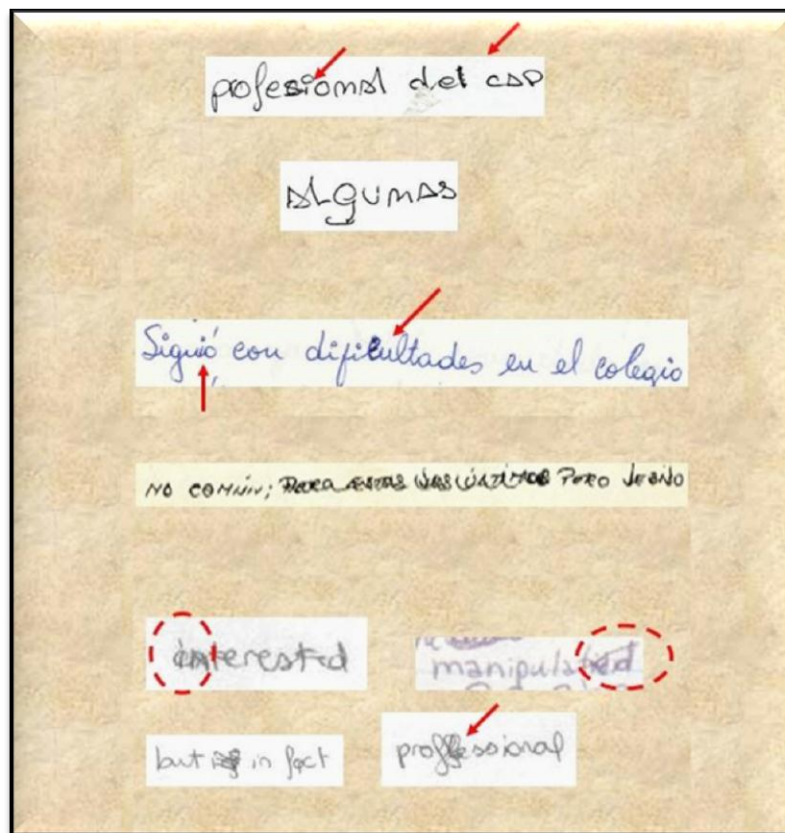 profesional del CAP
Algunas
Siguió con dificultades en el colegio
NO COMÚN; PARA ESTAS ÚLTIMAS PERO
interested manipulated
but in fact proffessional